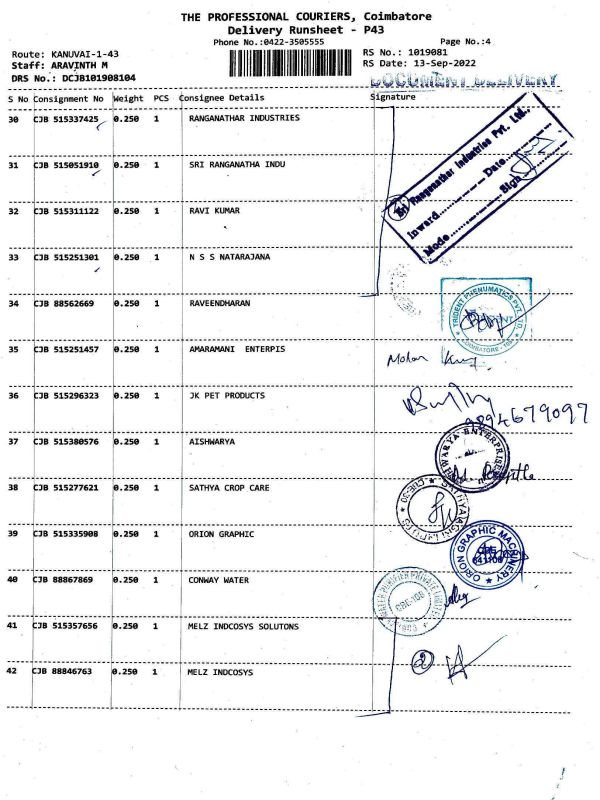 THE PROFESSIONAL COURIERS, Coimbatore
Delivery Runsheet - P43
Phone No.:0422-3505555 Page No.:4
Route: KANUVAI-1-43 RS No.: 1019081
Staff: ARAVINTH M RS Date: 13-Sep-2022
DRS No.: DCJB101908104
DOCUMENT DELIVERY
S No Consignment No Weight PCS Consignee Details Signature
30 CJB 515337425 0.250 1 RANGANATHAR INDUSTRIES
Sri Ranganathar Industries Pvt. Ltd.,
Inward Date
Mode Sign
31 CJB 515051910 0.250 1 SRI RANGANATHA INDU
32 CJB 515311122 0.250 1 RAVI KUMAR
33 CJB 515251301 0.250 1 N S S NATARAJANA
34 CJB 88562669 0.250 1 RAVEENDHARAN
TRIDENT PNEUMATICS PVT. LTD.
COIMBATORE
35 CJB 515251457 0.250 1 AMARAMANI ENTERPIS
Mohan
36 CJB 515296323 0.250 1 JK PET PRODUCTS
9894679097
37 CJB 515380576 0.250 1 AISHWARYA
38 CJB 515277621 0.250 1 SATHYA CROP CARE
CBE-30
39 CJB 515335908 0.250 1 ORION GRAPHIC
ORION GRAPHIC MACHINERY
40 CJB 88867869 0.250 1 CONWAY WATER
WATER PURIFIER PRIVATE LIMITED
CBE-108
41 CJB 515357656 0.250 1 MELZ INDCOSYS SOLUTONS
42 CJB 88846763 0.250 1 MELZ INDCOSYS
2